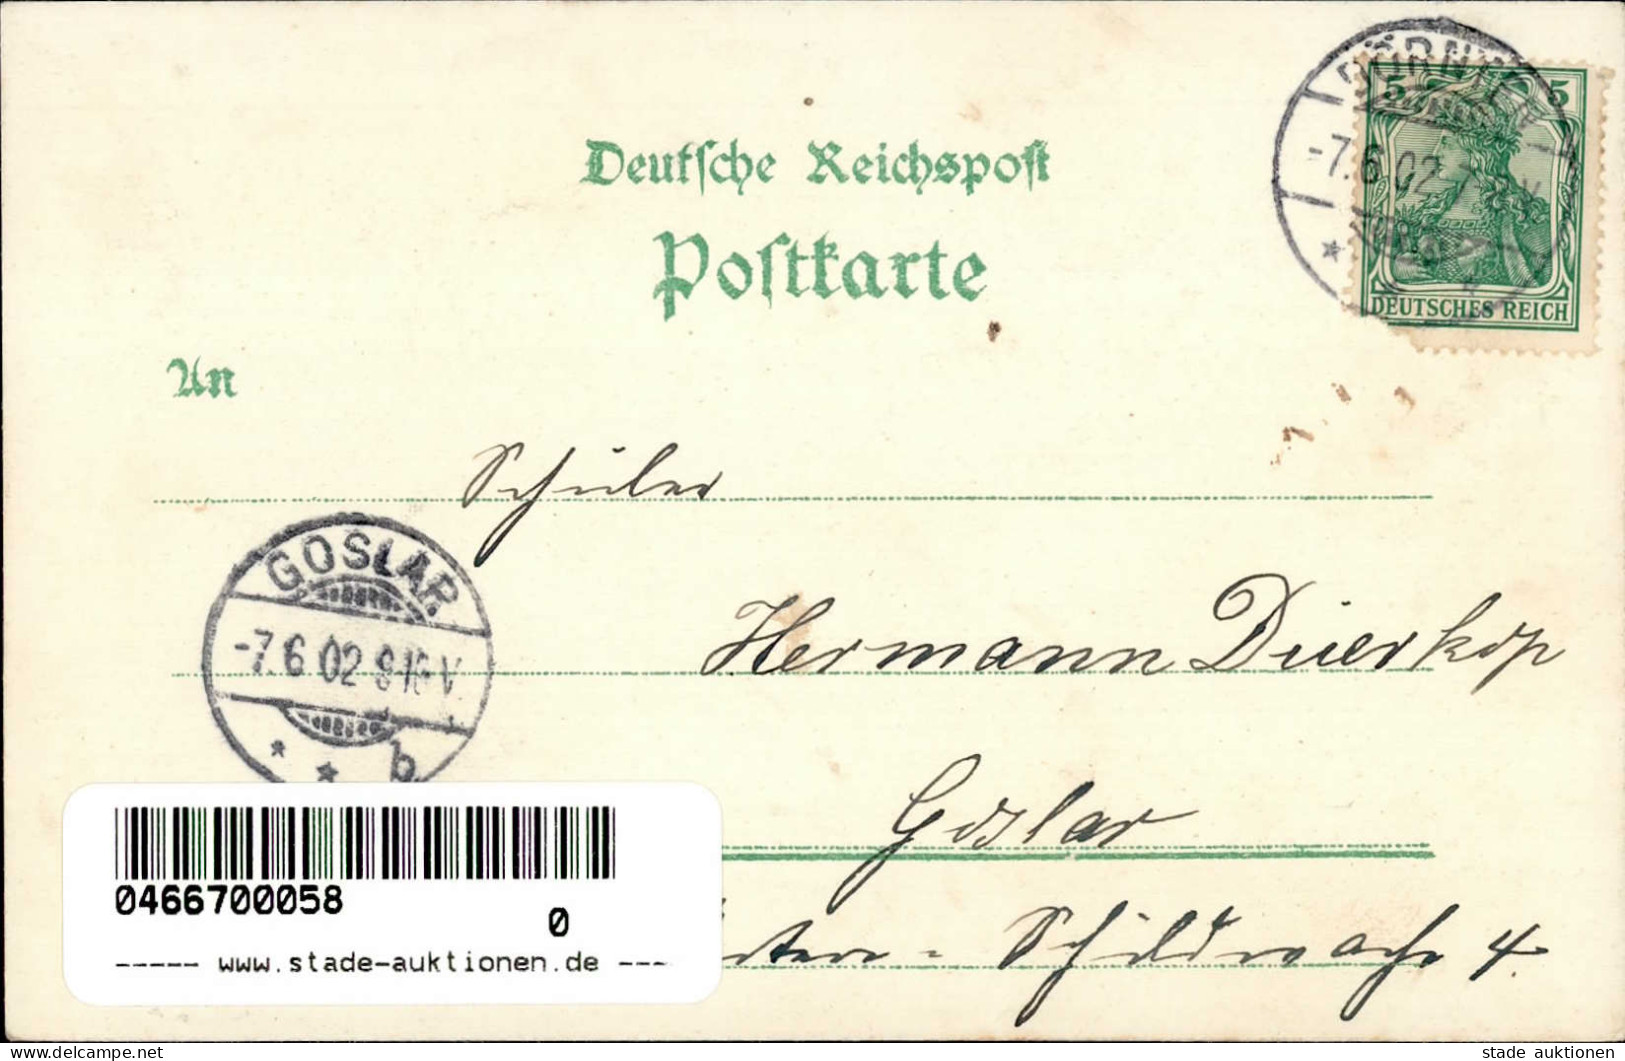 Deutsche Reichspost
Postkarte
An
5 5
DEUTSCHES REICH
-7.6.02
Schüler
Hermann Duerkop
Goslar
Schildwache 4.
GOSLAR
-7.6.02 9
b
0466700058
0
----- www.stade-auktionen.de ---
www.delcampe.net
stade auktionen